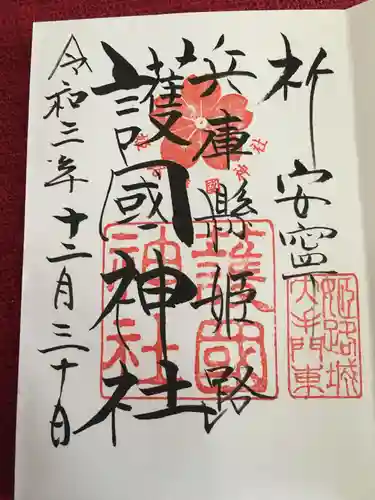 祈安寧
兵庫縣姫路
護國神社
令和三年十二月三十日
姫路城
大手門東
護國
神社